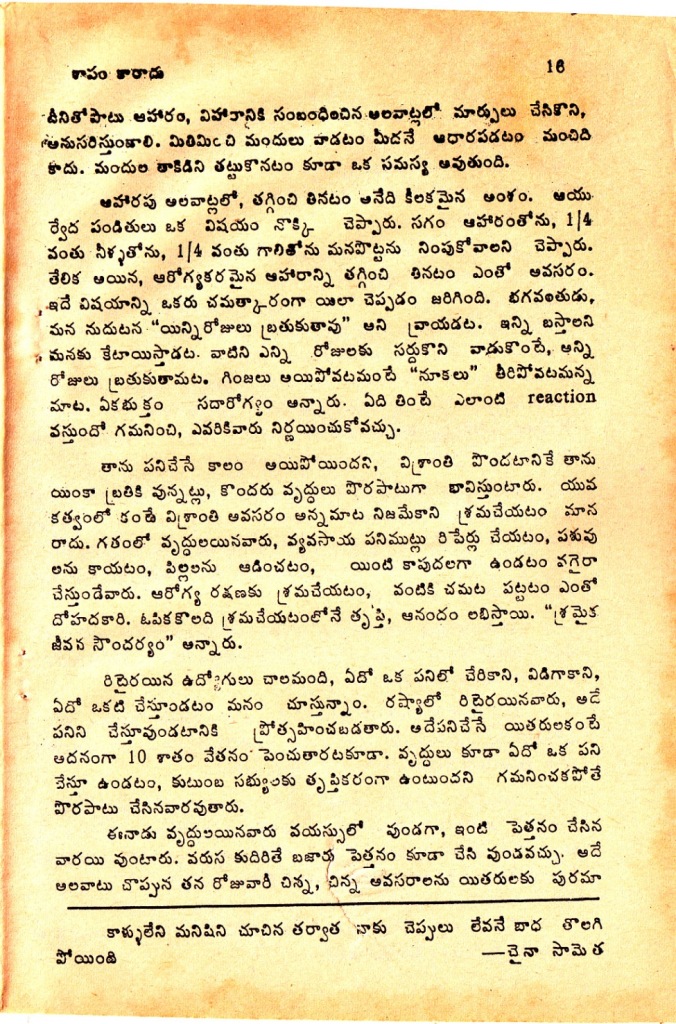 శాపం కారాదు 16
దీనితోపాటు ఆహారం, విహారానికి సంబంధించిన అలవాట్లలో మార్పులు చేసికొని,
అనుసరిస్తుండాలి. మితిమించి మందులు వాడటం మీదనే ఆధారపడటం మంచిది
కాదు. మందుల తాకిడిని తట్టుకొనటం కూడా ఒక సమస్య అవుతుంది.
ఆహారపు అలవాట్లలో, తగ్గించి తినటం అనేది కీలకమైన అంశం. ఆయు
ర్వేద పండితులు ఒక విషయం నొక్కి చెప్పారు. సగం ఆహారంతోను, 1/4
వంతు నీళ్ళతోను, 1/4 వంతు గాలితోను మనపొట్టను నింపుకోవాలని చెప్పారు.
తేలిక అయిన, ఆరోగ్యకరమైన ఆహారాన్ని తగ్గించి తినటం ఎంతో అవసరం.
ఇదే విషయాన్ని ఒకరు చమత్కారంగా యిలా చెప్పడం జరిగింది. భగవంతుడు,
మన నుదుటన “యిన్నిరోజులు బ్రతుకుతావు” అని వ్రాయడట. ఇన్ని బస్తాలని
మనకు కేటాయిస్తాడట. వాటిని ఎన్ని రోజులకు సర్దుకొని వాడుకొంటే, అన్ని
రోజులు బ్రతుకుతామట. గింజలు అయిపోవటమంటే “నూకలు” తీరిపోవటమన్న
మాట. ఏకభుక్తం సదారోగ్యం అన్నారు. ఏది తింటే ఎలాంటి reaction
వస్తుందో గమనించి, ఎవరికివారు నిర్ణయించుకోవచ్చు.
తాను పనిచేసే కాలం అయిపోయిందని, విశ్రాంతి పొందటానికే తాను
యింకా బ్రతికి వున్నట్లు, కొందరు వృద్ధులు పొరపాటుగా భావిస్తుంటారు. యువ
కత్వంలో కంటే విశ్రాంతి అవసరం అన్నమాట నిజమేకాని శ్రమచేయటం మాన
రాదు. గతంలో వృద్ధులయినవారు, వ్యవసాయ పనిముట్లు రిపేర్లు చేయటం, పశువు
లను కాయటం, పిల్లలను ఆడించటం, యింటి కాపుదలగా ఉండటం వగైరా
చేస్తుండేవారు. ఆరోగ్య రక్షణకు శ్రమచేయటం, వంటికి చమట పట్టటం ఎంతో
దోహదకారి. ఓపికకొలది శ్రమచేయటంలోనే తృప్తి, ఆనందం లభిస్తాయి. “శ్రమైక
జీవన సౌందర్యం” అన్నారు.
రిటైరయిన ఉద్యోగులు చాలమంది, ఏదో ఒక పనిలో చేరికాని, విడిగాకాని,
ఏదో ఒకటి చేస్తూండటం మనం చూస్తున్నాం. రష్యాలో రిటైరయినవారు, అదే
పనిని చేస్తూవుండటానికి ప్రోత్సహించబడతారు. అదేపనిచేసే యితరులకంటే
అదనంగా 10 శాతం వేతనం పెంచుతారటకూడా. వృద్ధులు కూడా ఏదో ఒక పని
చేస్తూ ఉండటం, కుటుంబ సభ్యులకు తృప్తికరంగా ఉంటుందని గమనించకపోతే
పొరపాటు చేసినవారవుతారు.
ఈనాడు వృద్ధులయినవారు వయస్సులో వుండగా, ఇంటి పెత్తనం చేసిన
వారయి వుంటారు. వరుస కుదిరితే బజారు పెత్తనం కూడా చేసి వుండవచ్చు. అదే
అలవాటు చొప్పున తన రోజువారీ చిన్న, చిన్న అవసరాలను యితరులకు పురమా
కాళ్ళులేని మనిషిని చూచిన తర్వాత నాకు చెప్పులు లేవనే బాధ తొలగి
పోయింది —చైనా సామెత